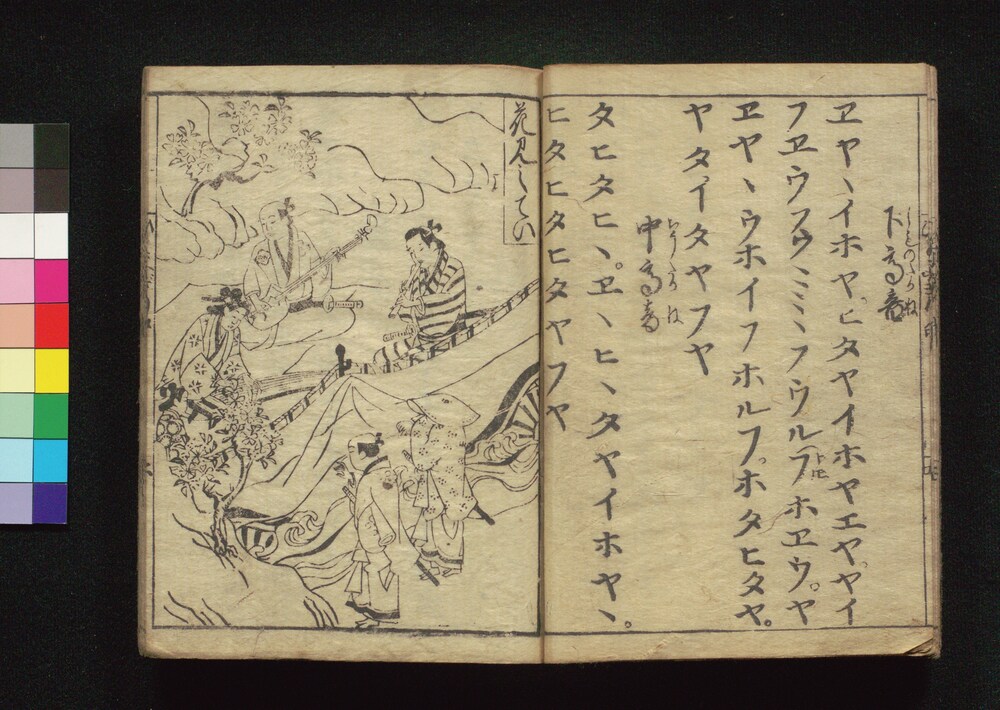 下高音
しものたかね
ヱヤヽイホヤヒタヤイホヤエヤヤイ
フヱウフウミミヽフウルフホヱウ。ヤ
ヱヤヽウホイフホルフ。ホタヒタヤ。
ヤタイタヤフヤ
中高音
タヒタヒヽ。ヱヽヒヽタヤイホヤヽ。
ヒタヒタヒタヤフヤ
花見してい